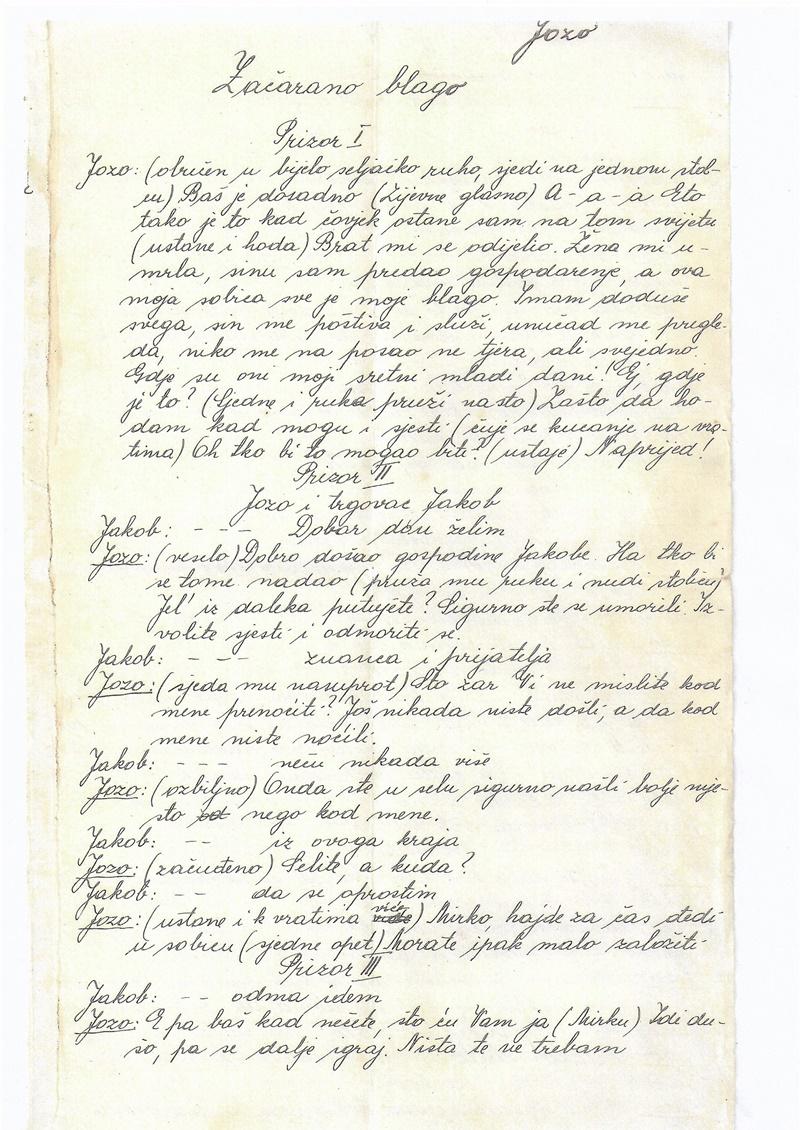 Jozo
Začarano blago
Prizor I
Jozo: (obučen u bijelo seljačko ruho, sjedi na jednom stol-
cu) Baš je dosadno (Zijevne glasno) A-a-a Eto
tako je to kad čovjek ostane sam na tom svijetu
(ustane i hoda) Brat mi se odijelio. Žena mi u-
mrla, sinu sam predao gospodarenje, a ova
moja sobica sve je moje blago. Imam doduše
svega, sin me poštiva i služi, unučad me pregle-
da, niko me na posao ne tjera, ali svejedno.
Gdje su oni moji sretni mladi dani! Ej, gdje
je to? (Sjedne i ruke pruži na sto) Zašto da ho-
dam kad mogu i sjesti (čuje se kucanje na vra-
tima) Oh tko bi to mogao biti? (ustaje) Naprijed!
Prizor II
Jozo i trgovac Jakob
Jakob: - - - Dobar dan želim
Jozo: (veselo) Dobro došao gospodine Jakobe. Ha tko bi
se tome nadao (pruža mu ruku i nudi stolicu)
Jel' iz daleka putujete? Sigurno ste se umorili. Iz-
volite sjesti i odmoriti se.
Jakob: - - - znanca i prijatelja
Jozo: (sjeda mu nasuprot) Što zar Vi ne mislite kod
mene prenoćiti? Još nikada niste došli, a da kod
mene niste noćili.
Jakob: - - - neću nikada više
Jozo: (ozbiljno) Onda ste u selu sigurno našli bolje mje-
sto od nego kod mene.
Jakob: - - iz ovoga kraja
Jozo: (začuđeno) Selite, a kuda?
Jakob: - - da se oprostim
Jozo: (ustane i k vratima viče) Mirko, hajde za čas dedi
u sobicu (sjedne opet) Morate ipak malo založiti
Prizor III
Jakob: - - odma idem
Jozo: E pa baš kad nećete, što ću Vam ja (Mirku) Idi du-
šo, pa se dalje igraj. Ništa te ne trebam